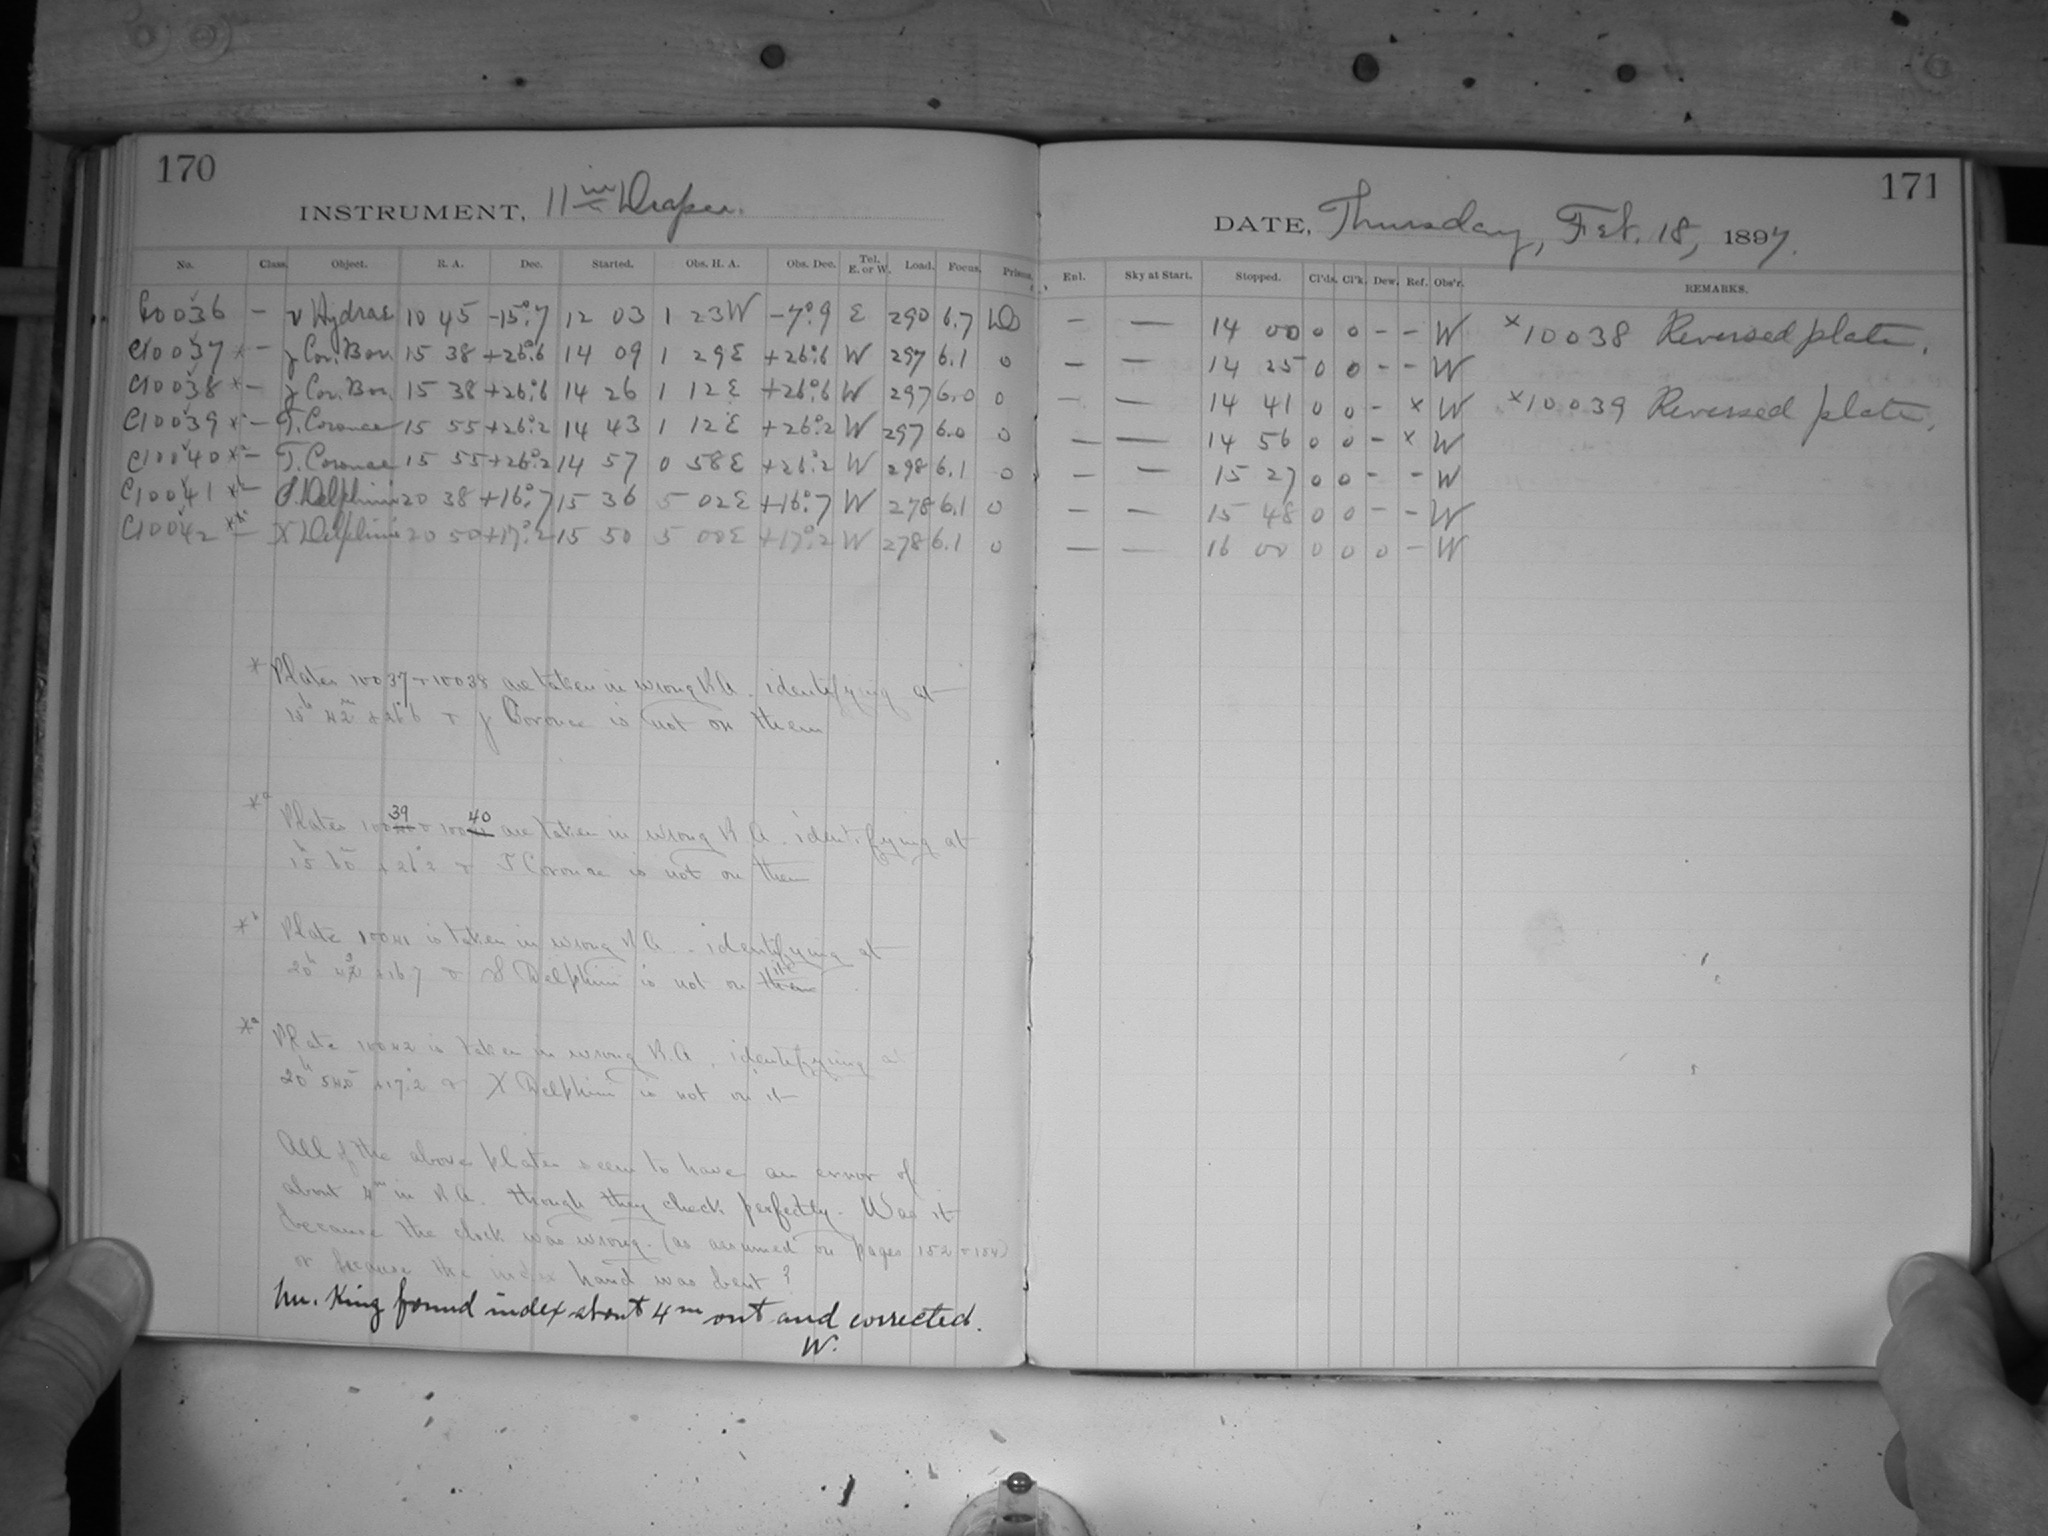 170
INSTRUMENT, 11 in Draper.
No. Class. Object. R. A. Dec. Started. Obs. H. A. Obs. Dec. Tel. E. or W. Load. Focus. Prisms.
C10036 – ν Hydrae 10 45 -15°.7 12 03 1 23W -7°.9 E 290 6.7
C10037 * – γ Cor. Bor. 15 38 +26°.6 14 09 1 29E +26°.6 W 297 6.1 0
C10038 * – γ Cor. Bor. 15 38 +26°.6 14 26 1 12E +26°.6 W 297 6.0 0
C10039 *a – T. Coronae 15 55 +26°.2 14 43 1 12E +26°.2 W 297 6.0 0
C10040 *a – T. Coronae 15 55 +26°.2 14 57 0 58E +26°.2 W 298 6.1 0
C10041 *b – S. Delphini 20 38 +16°.7 15 36 5 02E +16°.7 W 278 6.1 0
C10042 – X Delphini 20 50 +17°.2 15 50 5 00E +17°.2 W 278 6.1 0
* Plates 10037 + 10038 are taken in wrong R.A. identifying at
15h 42m +26°6 + γ Coronae is not on them
*a Plates 10039 + 10040 are taken in wrong R.A. identifying at
+26°2 + T Coronae is not on them
*b Plate 10041 is taken in wrong R.A. – identifying at
20h +16 7 + S Delphini is not on it
Plate 10042 is taken in wrong R.A., identifying at
20h +17°2 + X Delphini is not on it
All of the above plates seem to have an error of
about 4m in R.A. though they check perfectly. Was it
because the clock was wrong. (as assumed on pages 152 + 154)
or because the index hand was bent?
Mr. King found index about 4m out and corrected.
W.
171
DATE, Thursday, Feb. 18, 1897.
Enl. Sky at Start. Stopped. Cl'ds. Cl'k. Dew. Ref. Obs'r. REMARKS.
– – 14 00 0 0 – – W ×10038 Reversed plate.
– – 14 25 0 0 – – W
– – 14 41 0 0 – × W ×10039 Reversed plate.
– – 14 56 0 0 – × W
– – 15 27 0 0 – – W
– – 15 48 0 0 – – W
– – 16 00 0 0 0 – W